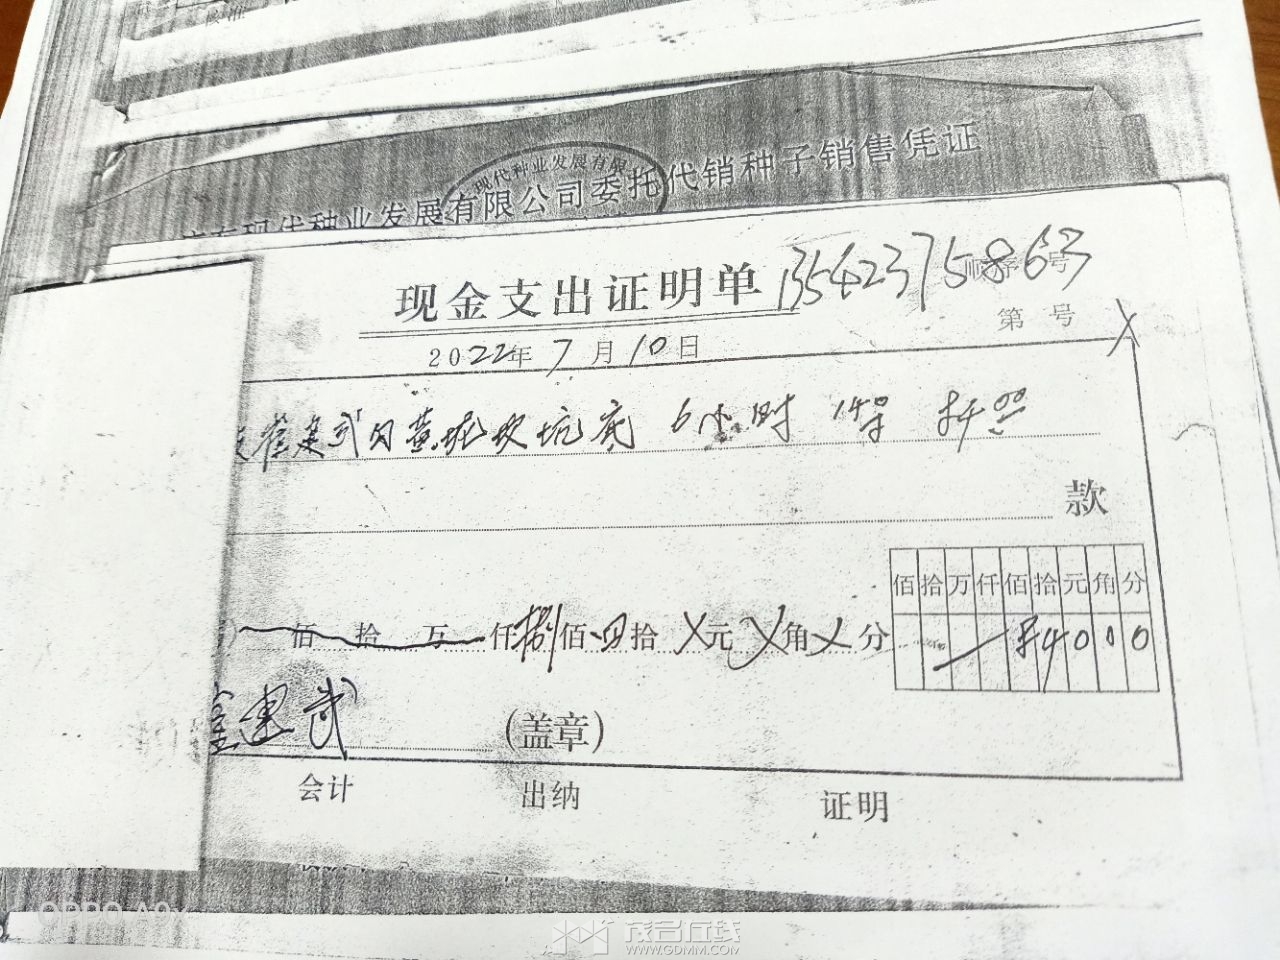 现代种业发展有限
现代种业发展有限公司委托代销种子销售凭证
现金支出证明单 13542375863
顺序 号
第 号
2022年7月10日
建武 黄坭坎坑底 6小时 140
款
佰拾万仟佰拾元角分
佰 拾 万 仟捌佰四拾X元X角X分
84000
建武 (盖章)
会计 出纳 证明
茂名在线
WWW.GDMM.COM